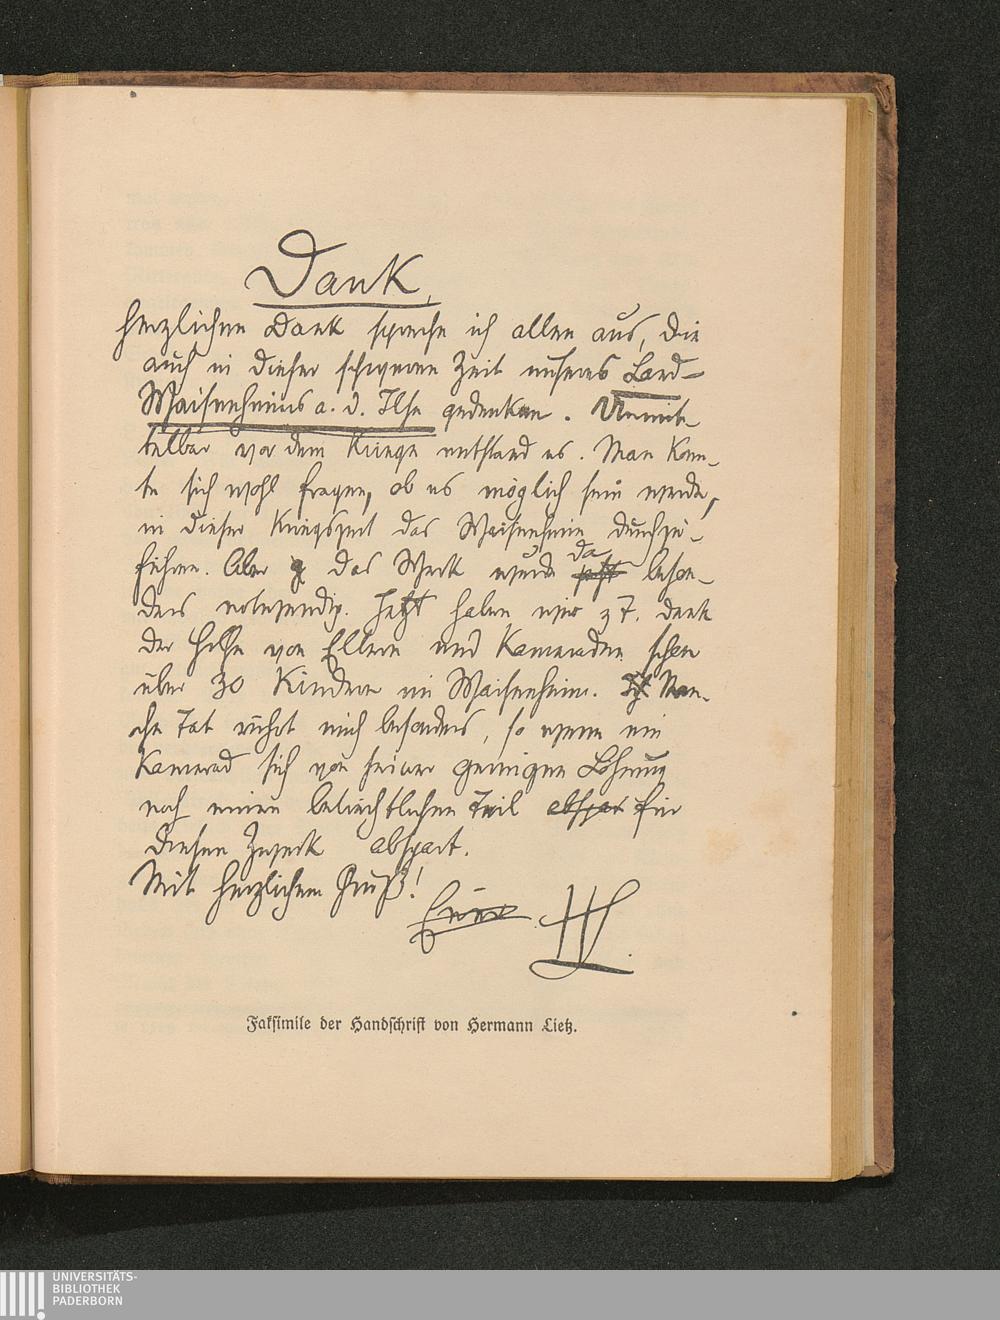 Dank.
Herzlichen Dank spreche ich allen aus, die
auch in dieser schweren Zeit unseres Land-
Waisenheims a. d. Ilse gedenken. Unmit-
telbar vor dem Kriege entstand es. Man konn-
te sich wohl fragen, ob es möglich sein werde,
in dieser Kriegszeit das Waisenheim durchzu-
führen. Aber das Werk wurde da beson-
ders notwendig. Jetzt haben wir z. T. dank
der Hilfe von Eltern und Kameraden schon
über 30 Kindern im Waisenheim. Man-
che Tat rührt mich besonders, so wenn ein
Kamerad sich von seiner geringen Löhnung
noch einen beträchtlichen Teil abspar für
diesen Zweck abspart.
Mit herzlichem Gruß!
Euer HL.
Faksimile der Handschrift von Hermann Lietz.
UNIVERSITÄTS-
BIBLIOTHEK
PADERBORN